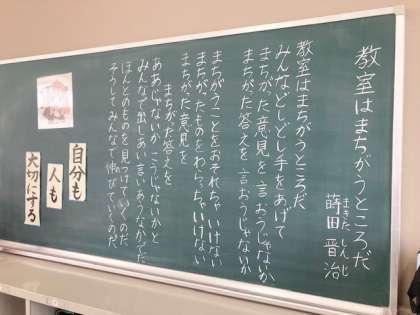 教室はまちがうところだ
まきた しんじ
蒔田 晋治
教室はまちがうところだ
みんなどしどし手をあげて
まちがった意見を言おうじゃないか
まちがった答えを言おうじゃないか
まちがうことをおそれちゃいけない
まちがったものをわらっちゃいけない
まちがった意見を
まちがった答えを
ああじゃないかこうじゃないかと
みんなで出しあい言いあうなかでだ
ほんとのものを見つけていくのだ
そうしてみんなで伸びていくのだ
自分も
人も
大切にする